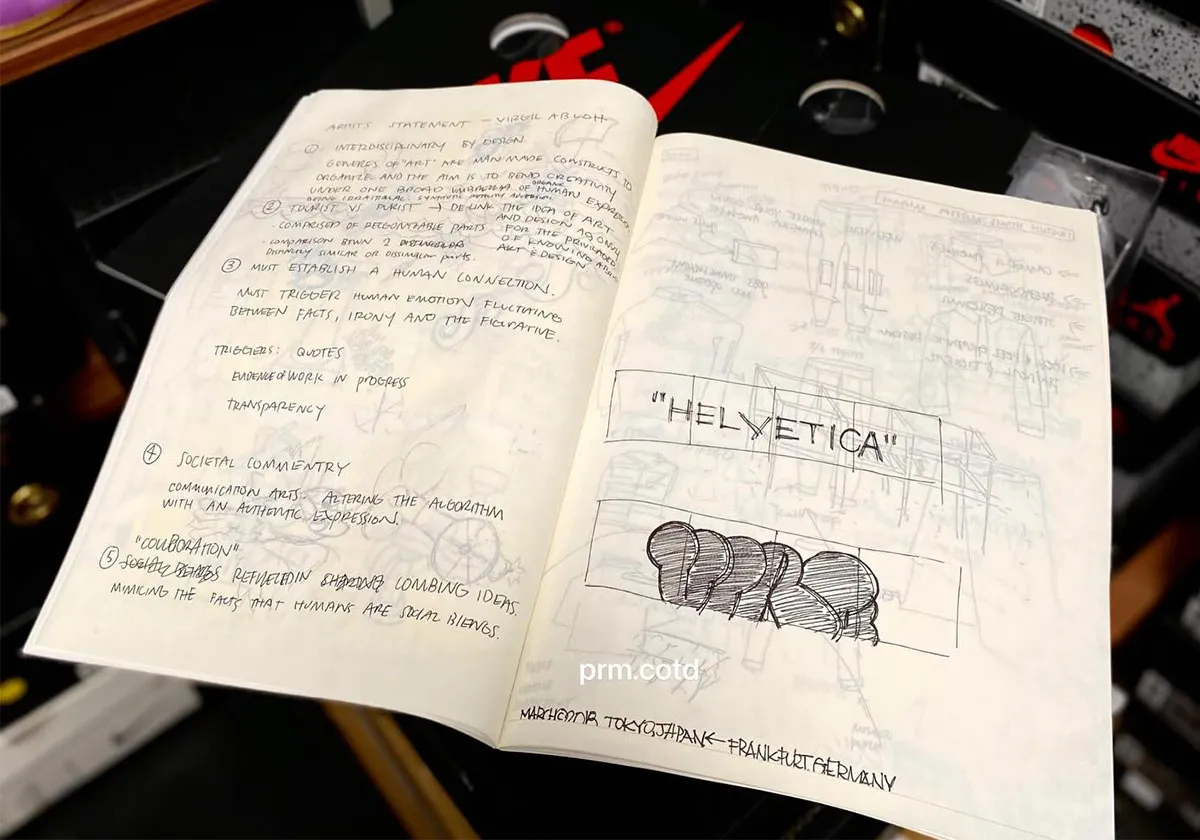 ARTIST'S STATEMENT — VIRGIL ABLOH
① INTERDISCIPLINARY BY DESIGN.
GENERES OF "ART" ARE MAN MADE CONSTRUCTS TO
ORGANIZE AND THE AIM IS TO BEND CREATIVITY
UNDER ONE BROAD UMBRELLA OF ORGANIC HUMAN EXPRESS
② TOURIST VS PURIST → DE-LINK THE IDEA OF ART
AND DESIGN AS ONLY
FOR THE PRIVILAGED
OF KNOWING ABOUT
ART & DESIGN
· COMPRISED OF RECGONIZABLE PARTS
· COMPARISON BTWN 2
SIMILAR OR DISSIMILAR PARTS.
③ MUST ESTABLISH A HUMAN CONNECTION.
MUST TRIGGER HUMAN EMOTION FLUCTUATING
BETWEEN FACTS, IRONY AND THE FIGURATIVE.
TRIGGERS: QUOTES
EVIDENCE OF WORK IN PROGRESS
TRANSPARENCY
④ SOCIETAL COMMENTRY
COMMUNICATION ARTS. ALTERING THE ALGORITHM
WITH AN AUTHENTIC EXPRESSION.
"COLLBORATION"
⑤ REFLECTED IN COMBING IDEAS.
MIMICING THE FACTS THAT HUMANS ARE SOCIAL BIENGS.
"HELVETICA"
prm.cotd
TOKYO, JAPAN ← FRANKFURT, GERMANY